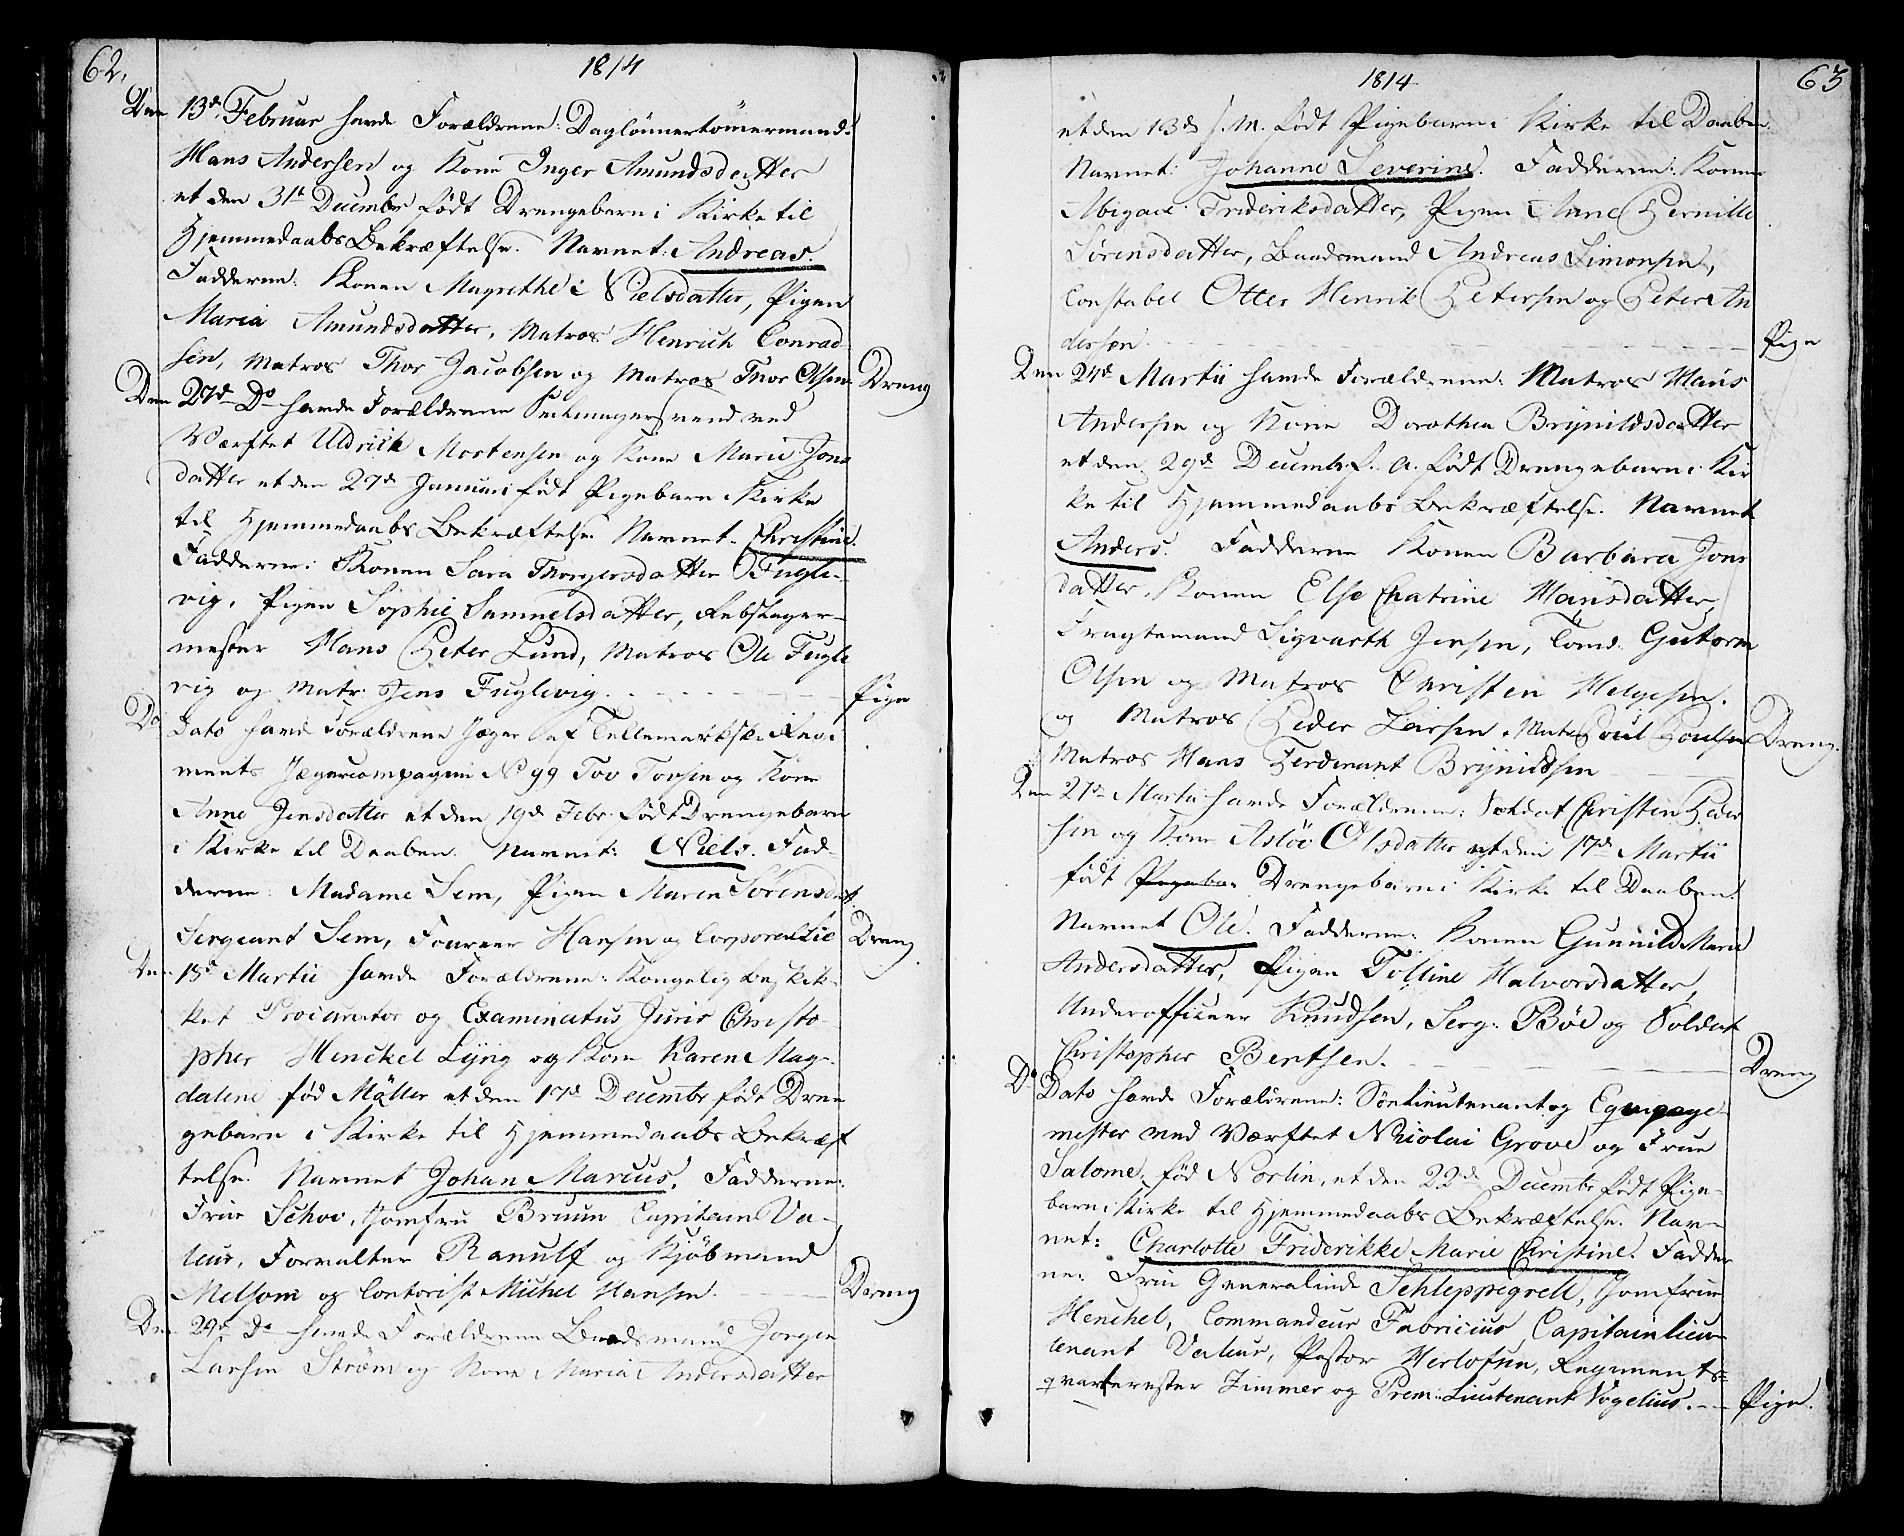 62.
1814
Den 13d. Februar havde Forældrene: Daglönnertömermand
Hans Andersen og Kone Inger Amundsdatter
et den 31t Decembr födt Drengebarn i Kirke til
Hjemmedaabs Bekræftelse. Navnet: Andreas.
Fadderne: Konen Magrethe Nielsdatter, Pigen
Maria Amundsdatter, Matros Henrich Conrad-
sen, Matros Thor Jacobsen og Matros Thor Olsen
Dreng
Den 27d Do havde Forældrene svend ved
Værftet Uldrich Mortensen og Kone Marie Jons
datter et den 27d Januari födt Pigebarn i Kirke
til Hjemmedaabs Bekræftelse. Navnet: Christine.
Fadderne: Konen Sara Thorgersdatter Fugle-
vig, Pigen Sophie Samuelsdatter, Rebslager-
mester Hans Peter Lund, Matros Ole Fugle
vig og Matr: Jens Fuglevig.
Pige
Do Dato havde Forældrene Jæger af Tellemarkske Regi
ments Jægercompagnie No 99 Tov Tovsen og Kone
Anne Jensdatter et den 19d Febr. födt Drengebarn
i Kirke til Daaben. Navnet: Niels. Fad-
derne: Madame Sem, Pigen Maren Sörensdat.
Sergeant Sem, Foureer Hansen og Corporal Lie
Dreng
Den 18d Martii havde Forældrene: Kongelig beskik-
ket Procurator og Examinatus Juris Christo-
pher Henckel Lÿng og Kone Karen Mag-
dalene född Möller et den 17d Decembr födt Dren
gebarn i Kirke til Hjemmedaabs Bekræf
telse. Navnet Johan Marcus. Fadderne:
Frue Schov, Jomfru Bruun Capitain Va-
leur, Forvalter Ranulf og Kjöbmand
Melsom og Contorist Michel Hansen.
Dreng
Den 24d Do havde Forældrene Baadsmand Jorgen
Larsen Ström og Kone Maria Andersdatter
1814
63
et den 13d f. M. födt Pigebarn i Kirke til Daaben.
Navnet: Johanne Severine. Fadderne: Konen
Abigael Frideriksdatter, Pigen Anne Pernille
Sörensdatter, Baadsmand Andreas Simonsen,
Constabel Otter Henrik Petersen og Peter An
dersen
Pige
Den 24d Martii havde Forældrene: Matros Hans
Andersen og Kone Dorothea Brÿnildsdatter
et den 29d Decembr f. A. födt Drengebarn i Kir
ke til Hjemmedaabs Bekræftelse. Navnet
Anders. Fadderne Konen Barbara Jons
datter, Konen Else Chatrine Hansdatter,
Fragtemand Sigvarth Jensen, Tömd. Gutorm
Olsen og Matros Christen Helgesen.
og Matros Peder Larsen, Mat: Poul Poulsen
Dreng.
Matros Hans Ferdenant Brÿnildsen
Den 27d Martii havde Forældrene: Soldat Christen Peder
sen og Kone Aslöv Olsdatter et den 17d Martii
födt Pigebar Drengebarn i Kirke til Daaben.
Navnet Ole. Fadderne: Konen Gunnild Marie
Andersdatter, Pigen Tolline Halvorsdatter,
Underofficeer Knudsen, Serg: Böe og Soldat
Christopher Bentsen.
Dreng
Do Dato havde Forældrene: Sönlieutenant og Equipage-
mester ved Værftet Nicolai Grove og Frue
Salome, född Norlin, et den 22d Decembr födt Pige-
barn i Kirke til Hjemmedaabs Bekræftelse. Nav-
net: Charlotte Friderikke Marie Christine. Fadder
ne: Frue Generalinde Schleppegrell, Jomfrue
Henchel, Commandeur Fabricius, Capitainlieu-
tenant Valeur, Pastor Herlofsen, Regiments-
qvartermester Zimmer og Prem: Lieutenant Vogelius.
Pige.